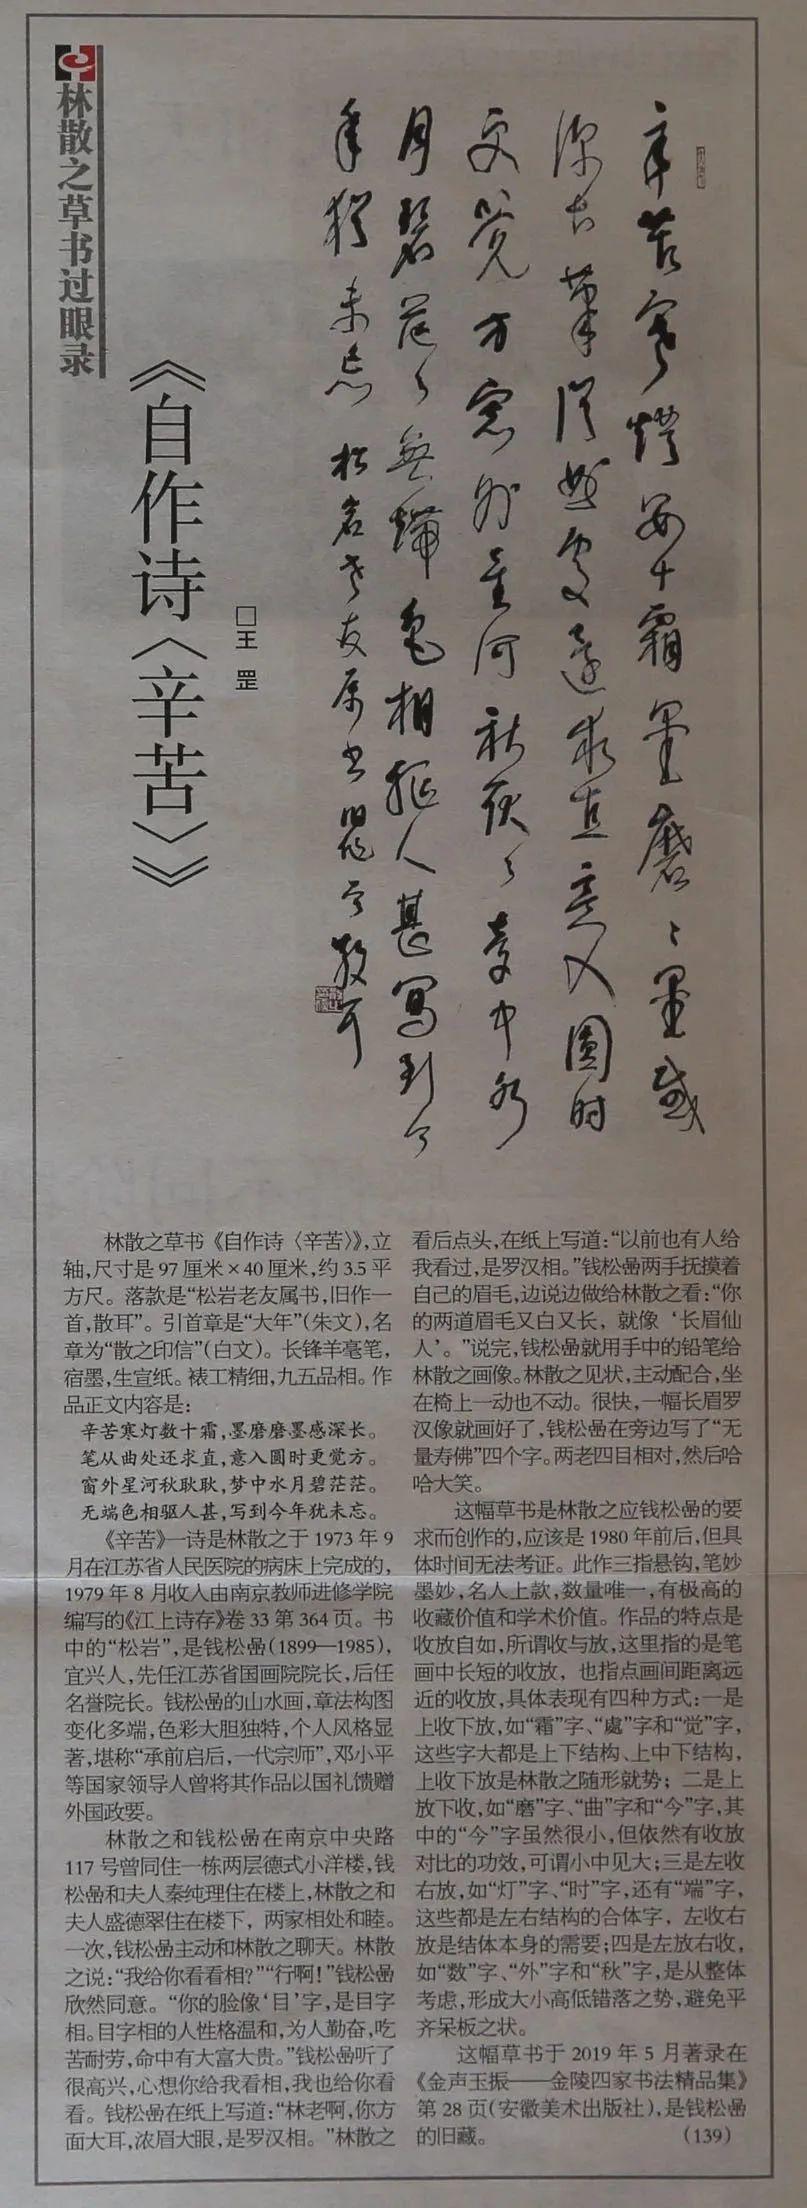 林散之草书过眼录
《自作诗〈辛苦〉》
□王罡
辛苦寒燈数十霜墨磨々墨感
深长筆從曲處還求直意入圓时
更觉方窗外星河秋耿々夢中水
月碧茫々無端色相驱人甚寫到今
年猶未忘 松岩老友属书旧作一首散耳
林散之草书《自作诗〈辛苦〉》,立
轴,尺寸是97厘米×40厘米,约3.5平
方尺。落款是“松岩老友属书,旧作一
首,散耳”。引首章是“大年”(朱文),名
章为“散之印信”(白文)。长锋羊毫笔,
宿墨,生宣纸。裱工精细,九五品相。作
品正文内容是:
辛苦寒灯数十霜,墨磨磨墨感深长。
笔从曲处还求直,意入圆时更觉方。
窗外星河秋耿耿,梦中水月碧茫茫。
无端色相驱人甚,写到今年犹未忘。
《辛苦》一诗是林散之于1973年9
月在江苏省人民医院的病床上完成的,
1979年8月收入由南京教师进修学院
编写的《江上诗存》卷33第364页。书
中的“松岩”,是钱松喦(1899—1985),
宜兴人,先任江苏省国画院院长,后任
名誉院长。钱松喦的山水画,章法构图
变化多端,色彩大胆独特,个人风格显
著,堪称“承前启后,一代宗师”,邓小平
等国家领导人曾将其作品以国礼馈赠
外国政要。
林散之和钱松喦在南京中央路
117号曾同住一栋两层德式小洋楼,钱
松喦和夫人秦纯理住在楼上,林散之和
夫人盛德翠住在楼下,两家相处和睦。
一次,钱松喦主动和林散之聊天。林散
之说:“我给你看看相?”“行啊!”钱松喦
欣然同意。“你的脸像‘目’字,是目字
相。目字相的人性格温和,为人勤奋,吃
苦耐劳,命中有大富大贵。”钱松喦听了
很高兴,心想你给我看相,我也给你看
看。钱松喦在纸上写道:“林老啊,你方
面大耳,浓眉大眼,是罗汉相。”林散之
看后点头,在纸上写道:“以前也有人给
我看过,是罗汉相。”钱松喦两手抚摸着
自己的眉毛,边说边做给林散之看:“你
的两道眉毛又白又长,就像‘长眉仙
人’。”说完,钱松喦就用手中的铅笔给
林散之画像。林散之见状,主动配合,坐
在椅上一动也不动。很快,一幅长眉罗
汉像就画好了,钱松喦在旁边写了“无
量寿佛”四个字。两老四目相对,然后哈
哈大笑。
这幅草书是林散之应钱松喦的要
求而创作的,应该是1980年前后,但具
体时间无法考证。此作三指悬钩,笔妙
墨妙,名人上款,数量唯一,有极高的
收藏价值和学术价值。作品的特点是
收放自如,所谓收与放,这里指的是笔
画中长短的收放,也指点画间距离远
近的收放,具体表现有四种方式:一是
上收下放,如“霜”字、“處”字和“觉”字,
这些字大都是上下结构、上中下结构,
上收下放是林散之随形就势;二是上
放下收,如“磨”字、“曲”字和“今”字,其
中的“今”字虽然很小,但依然有收放
对比的功效,可谓小中见大;三是左收
右放,如“灯”字、“时”字,还有“端”字,
这些都是左右结构的合体字,左收右
放是结体本身的需要;四是左放右收,
如“数”字、“外”字和“秋”字,是从整体
考虑,形成大小高低错落之势,避免平
齐呆板之状。
这幅草书于2019年5月著录在
《金声玉振——金陵四家书法精品集》
第28页(安徽美术出版社),是钱松喦
的旧藏。 (139)